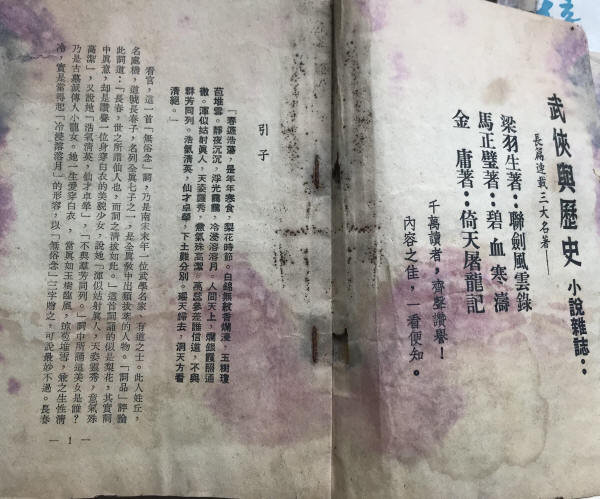 武俠與歷史 小說雜誌：
長篇連載三大名著——
梁羽生著：聯劍風雲錄
馬正璧著：碧血寒濤
金　庸著：倚天屠龍記
千萬讀者，齊聲讚譽！
內容之佳，一看便知。
引子
「春遊浩蕩，是年年寒食，梨花時節。白錦無紋香爛漫，玉樹瓊
苞堆雪。靜夜沉沉，浮光靄靄，冷浸溶溶月。人間天上，爛銀霞照通
徹。渾似姑射真人，天姿靈秀，意氣殊高潔。萬蕊參差誰信道，不與
群芳同列。浩氣清英，仙才卓犖，下土難分別。瑤天歸去，洞天方看
清絕。」
看官，這一首「無俗念」詞，乃是南宋末年一位武學名家，有道之士。此人姓丘，
名處機，道號長春子，名列全真七子之一，是全真教中出類拔萃的人物。「詞品」評論
此詞道：「長春，世之所謂仙人也，而詞之清拔如此。」這首詞誦的似是梨花，其實詞
中真意，卻是讚譽一位身穿白衣的美貌少女，說她「渾似姑射真人，天姿靈秀，意氣殊
高潔」，又說她「浩氣清英，仙才卓犖」，「不與羣芳同列」。詞中所誦這美女是誰？
乃是古墓派傳人小龍女。她一生愛穿白衣，當真如玉樹臨風，瓊苞堆雪，兼之生性清
冷，實是當得起「冷浸溶溶月」的形容，以「無俗念」三字贈之，可說最妙不過。長春
— 1 —